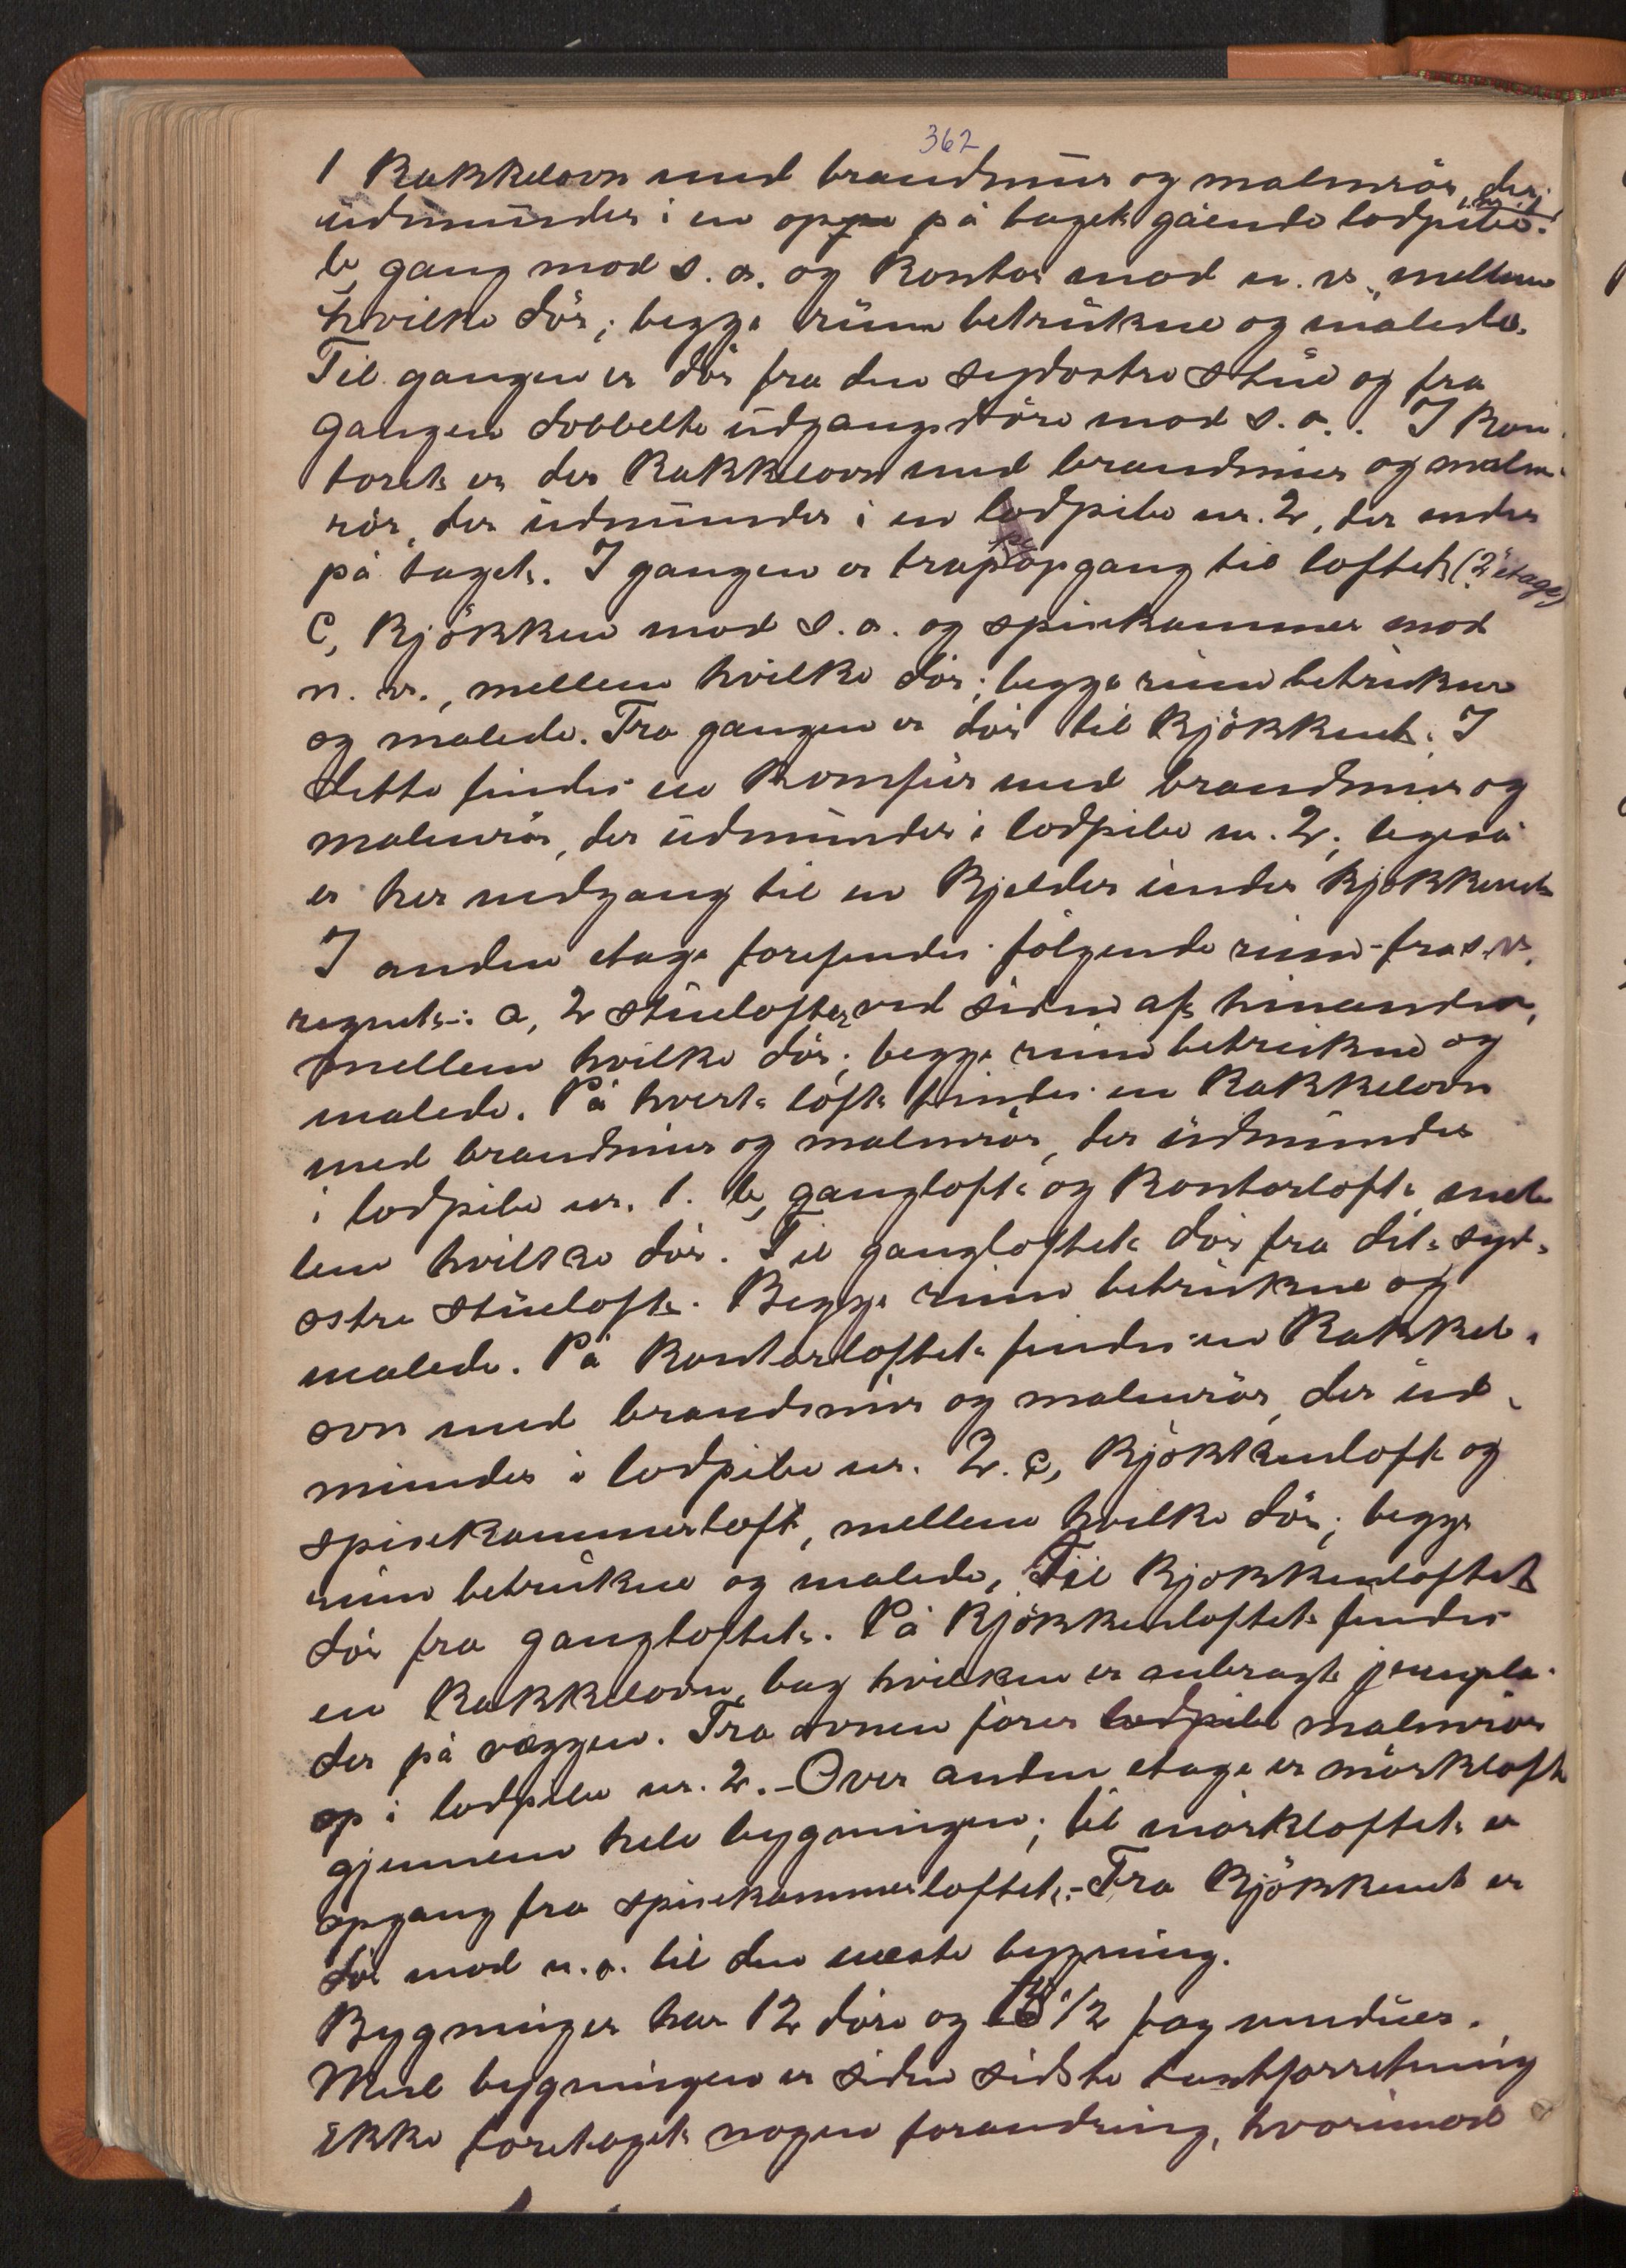 362
1 Kakkelovn med brandmur og malmrör, der
udmunder i en oppe på taget gående lodpibe. nr. 1.
b, gang mod s. o. og Kontor mod n. v., mellem
hvilke dör; begge rum betrukne og malede.
Til gangen er dör fra den sydostre stue og fra
gangen dobbelte udgangsdöre mod s. o.. I Kon-
toret er der Kakkelovn med brandmur og malm-
rör, der udmunder i en lodpibe nr. 2, der ender
på taget. I gangen er trapopgang til loftet (2den etage)
C, Kjökken mod s. o. og spisekammer mod
n. v., mellem hvilke dör; begge rum betrukne
og malede. Fra gangen er dör til Kjökkenet. I
dette findes en Komfur med brandmur og
malmrör, der udmunder i lodpibe nr. 2; ligeså
er her nedgang til en Kjelder under Kjökkenet
I anden etage forefindes följgende rum - fra s. v.
regnet -: a, 2 stuelofter ved siden af hinanden,
mellem hvilke dör; begge rum betrukne og
malede. På hvert loft findes en Kakkelovn
med brandmur og malmrör, der udmunder
i lodpibe nr. 1. b, gangloft og Kontorloft, mel-
lem hvilke dör. Til gangloftet dör fra det syd-
ostre stueloft. Begge rum betrukne og
malede. På Kontorloftet findes en Kakkel-
ovn med brandmur og malmrör, der ud-
munder i lodpibe nr. 2. c, Kjökkenloft og
spisekammerloft, mellem hvilke dör; begge
rum betrukne og malede, Til Kjökkenloftet
dör fra gangloftet. På Kjökkenloftet findes
en Kakkelovn, bag hvilken er anbragt jernpla-
der på væggen. Fra ovnen förer lodpibe malmrör
op i lodpibe nr. 2. - Over anden etage er mörkloft
gjennem hele bygningen; til mörkloftet er
opgang fra spisekammerloftet. - Fra Kjökkenet er
dör mod n. o. til den næste bygning.
Bygningen har 12 döre og 1/2 fag vinduer.
Med bygningen er siden sidste taxtforretning
ikke foretaget nogen forandring, hvorimod